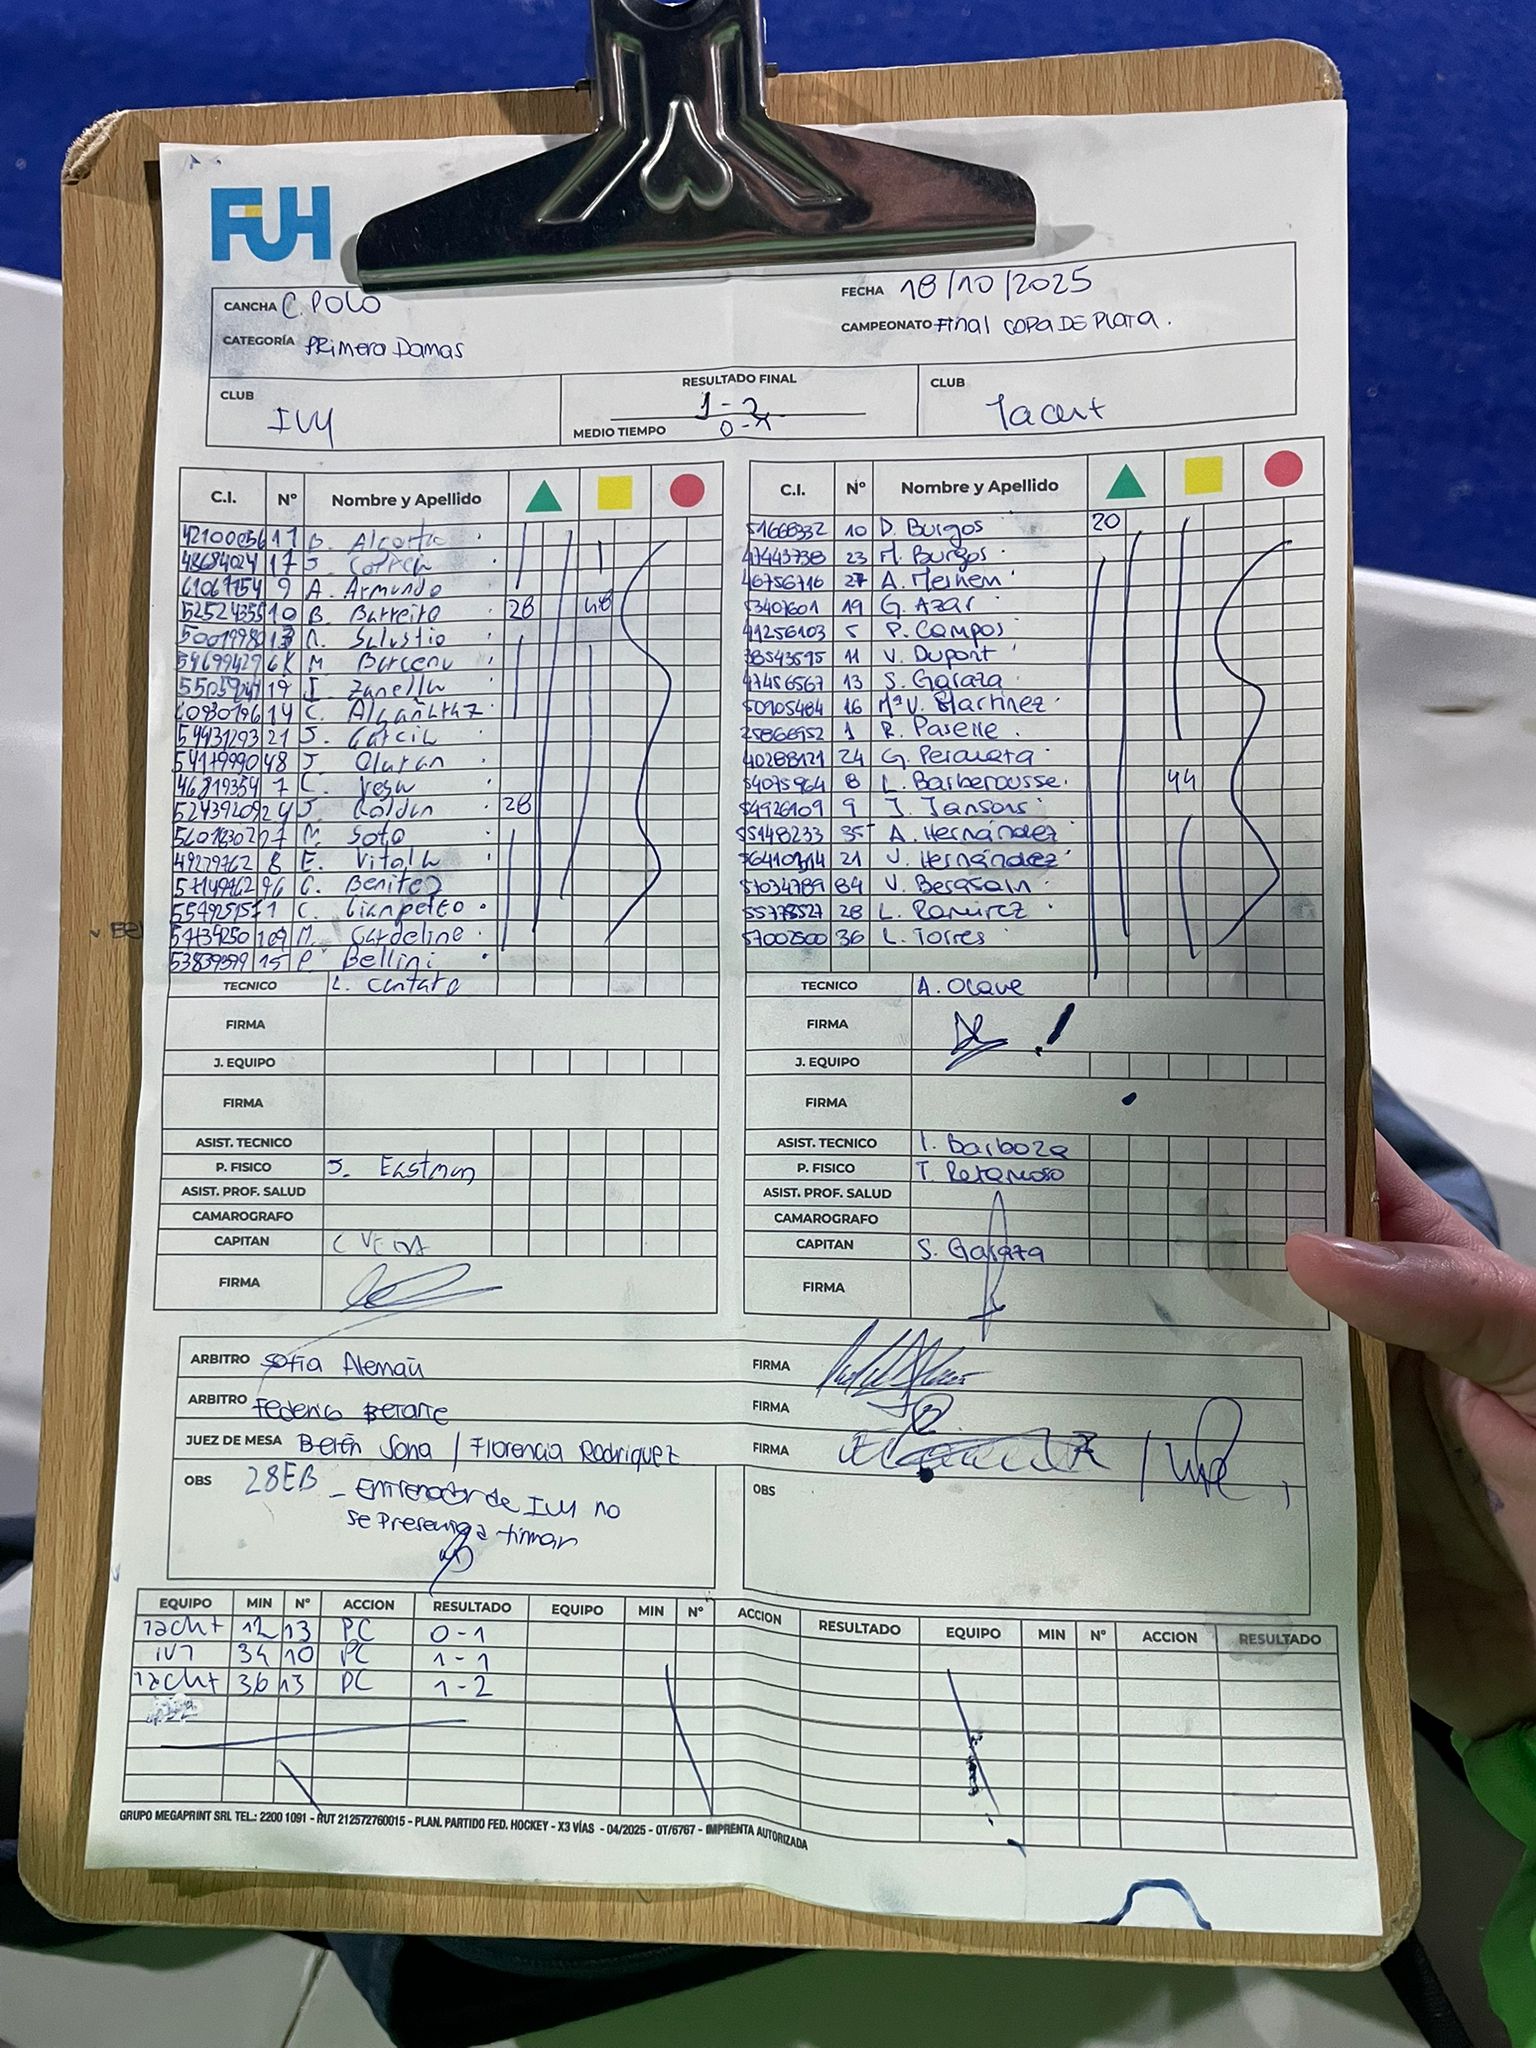 FUH
CANCHA C. POLO
FECHA 18/10/2025
CATEGORÍA PRimera Damas
CAMPEONATO Final COPA DE PLATA.
CLUB IVY
RESULTADO FINAL 1-2
MEDIO TIEMPO 0-1
CLUB Yacht
C.I. Nº Nombre y Apellido
17 J. Correa
61067154 9 A. Armundo
52524355 10 B. Barreito 28 48
M. Barcena
19 I. Zanella
14 C.
21 J. Garcia
54179990 48 J.
46819354 7 C. Vega
24 J. Roldan 28
M. Soto
49279762 8 E. Vitale
96 C. Benitez
1 C. Cianpeteo
109 M. Gardeline
53839399 15 P. Bellini
TECNICO L. Cantato
FIRMA
J. EQUIPO
FIRMA
ASIST. TECNICO
P. FISICO J. Eastman
ASIST. PROF. SALUD
CAMAROGRAFO
CAPITAN C VEGA
FIRMA
C.I. Nº Nombre y Apellido
51668332 10 D. Burgos 20
47443738 23 M. Burgos
46756716 27 A. Meihem
53401601 19 G. Azar
41256103 5 P. Campos
38543595 11 V. Dupont
47456567 13 S. Garaza
50905484 16 Mª V. Martinez
25866952 1 R. Paselle
40288121 24 G.
54075964 8 L. Barberousse 44
54926109 9 J. Jansons
55148233 35 A. Hernández
21 J. Hernández
57034789 84 V. Bergsain
55778527 28 L. Ramirez
57002500 36 L. Torres
TECNICO A. Olave
FIRMA
J. EQUIPO
FIRMA
ASIST. TECNICO I. Barboza
P. FISICO T. Retamoso
ASIST. PROF. SALUD
CAMAROGRAFO
CAPITAN S. Garaza
FIRMA
ARBITRO Sofia Aleman FIRMA
ARBITRO Federico Betarte FIRMA
JUEZ DE MESA Belén Sona / Florencia Rodriguez FIRMA
OBS 28EB - Entrenador de IVY no
se Presenta a firmar
OBS
EQUIPO MIN Nº ACCION RESULTADO EQUIPO MIN Nº ACCION RESULTADO EQUIPO MIN Nº ACCION RESULTADO
Yacht 12 13 PC 0-1
IVY 34 10 PC 1-1
Yacht 36 13 PC 1-2
GRUPO MEGAPRINT SRL TEL.: 2200 1091 - RUT 212572760015 - PLAN. PARTIDO FED. HOCKEY - X3 VÍAS - 04/2025 - OT/6767 - IMPRENTA AUTORIZADA